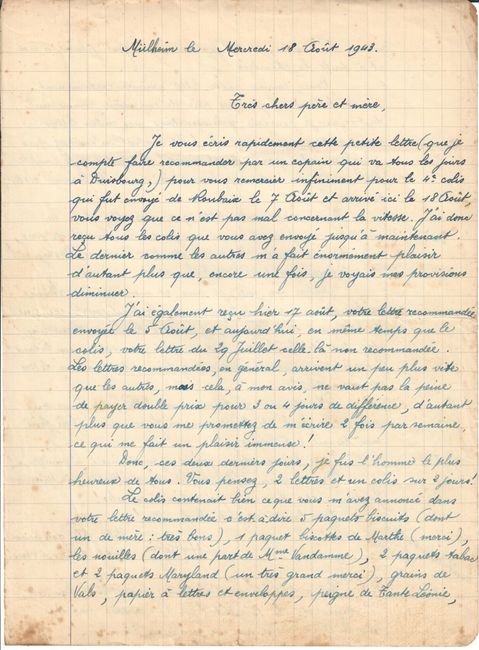 Mülheim le Mercredi 18 Août 1943.
Très chers père et mère,
Je vous écris rapidement cette petite lettre (que je
compte faire recommander par un copain qui va tous les jours
à Duisbourg,) pour vous remercier infiniment pour le 4e colis
qui fut envoyé de Roubaix le 7 Août et arrivé ici le 18 Août,
vous voyez que ce n'est pas mal concernant la vitesse. J'ai donc
reçu tous les colis que vous avez envoyé jusqu'à maintenant.
Le dernier comme les autres m'a fait énormement plaisir
d'autant plus que, encore une fois, je voyais mes provisions
diminuer.
J'ai également reçu hier 17 août, votre lettre recommandée
envoyée le 5 Août, et aujourd'hui, en même temps que le
colis, votre lettre du 29 Juillet celle-là non recommandée.
Les lettres recommandées, en général, arrivent un peu plus vite
que les autres, mais cela, à mon avis, ne vaut pas la peine
de payer double prix pour 3 ou 4 jours de différence, d'autant
plus que vous me promettez de m'écrire 2 fois par semaine,
ce qui me fait un plaisir immense!
Donc, ces deux derniers jours, je fus l'homme le plus
heureux de tous. Vous pensez, 2 lettres et un colis sur 2 jours!
Le colis contenait bien ce que vous m'avez annoncé dans
votre lettre recommandée c'est à dire 5 paquets biscuits (dont
un de mère: très bons), 1 paquet biscottes de Marthe (merci),
les nouilles (dont une part de Mme Vandamme), 2 paquets tabac
et 2 paquets Maryland (un très grand merci), grains de
Vals, papier à lettres et enveloppes, peigne de Tante Léonie,